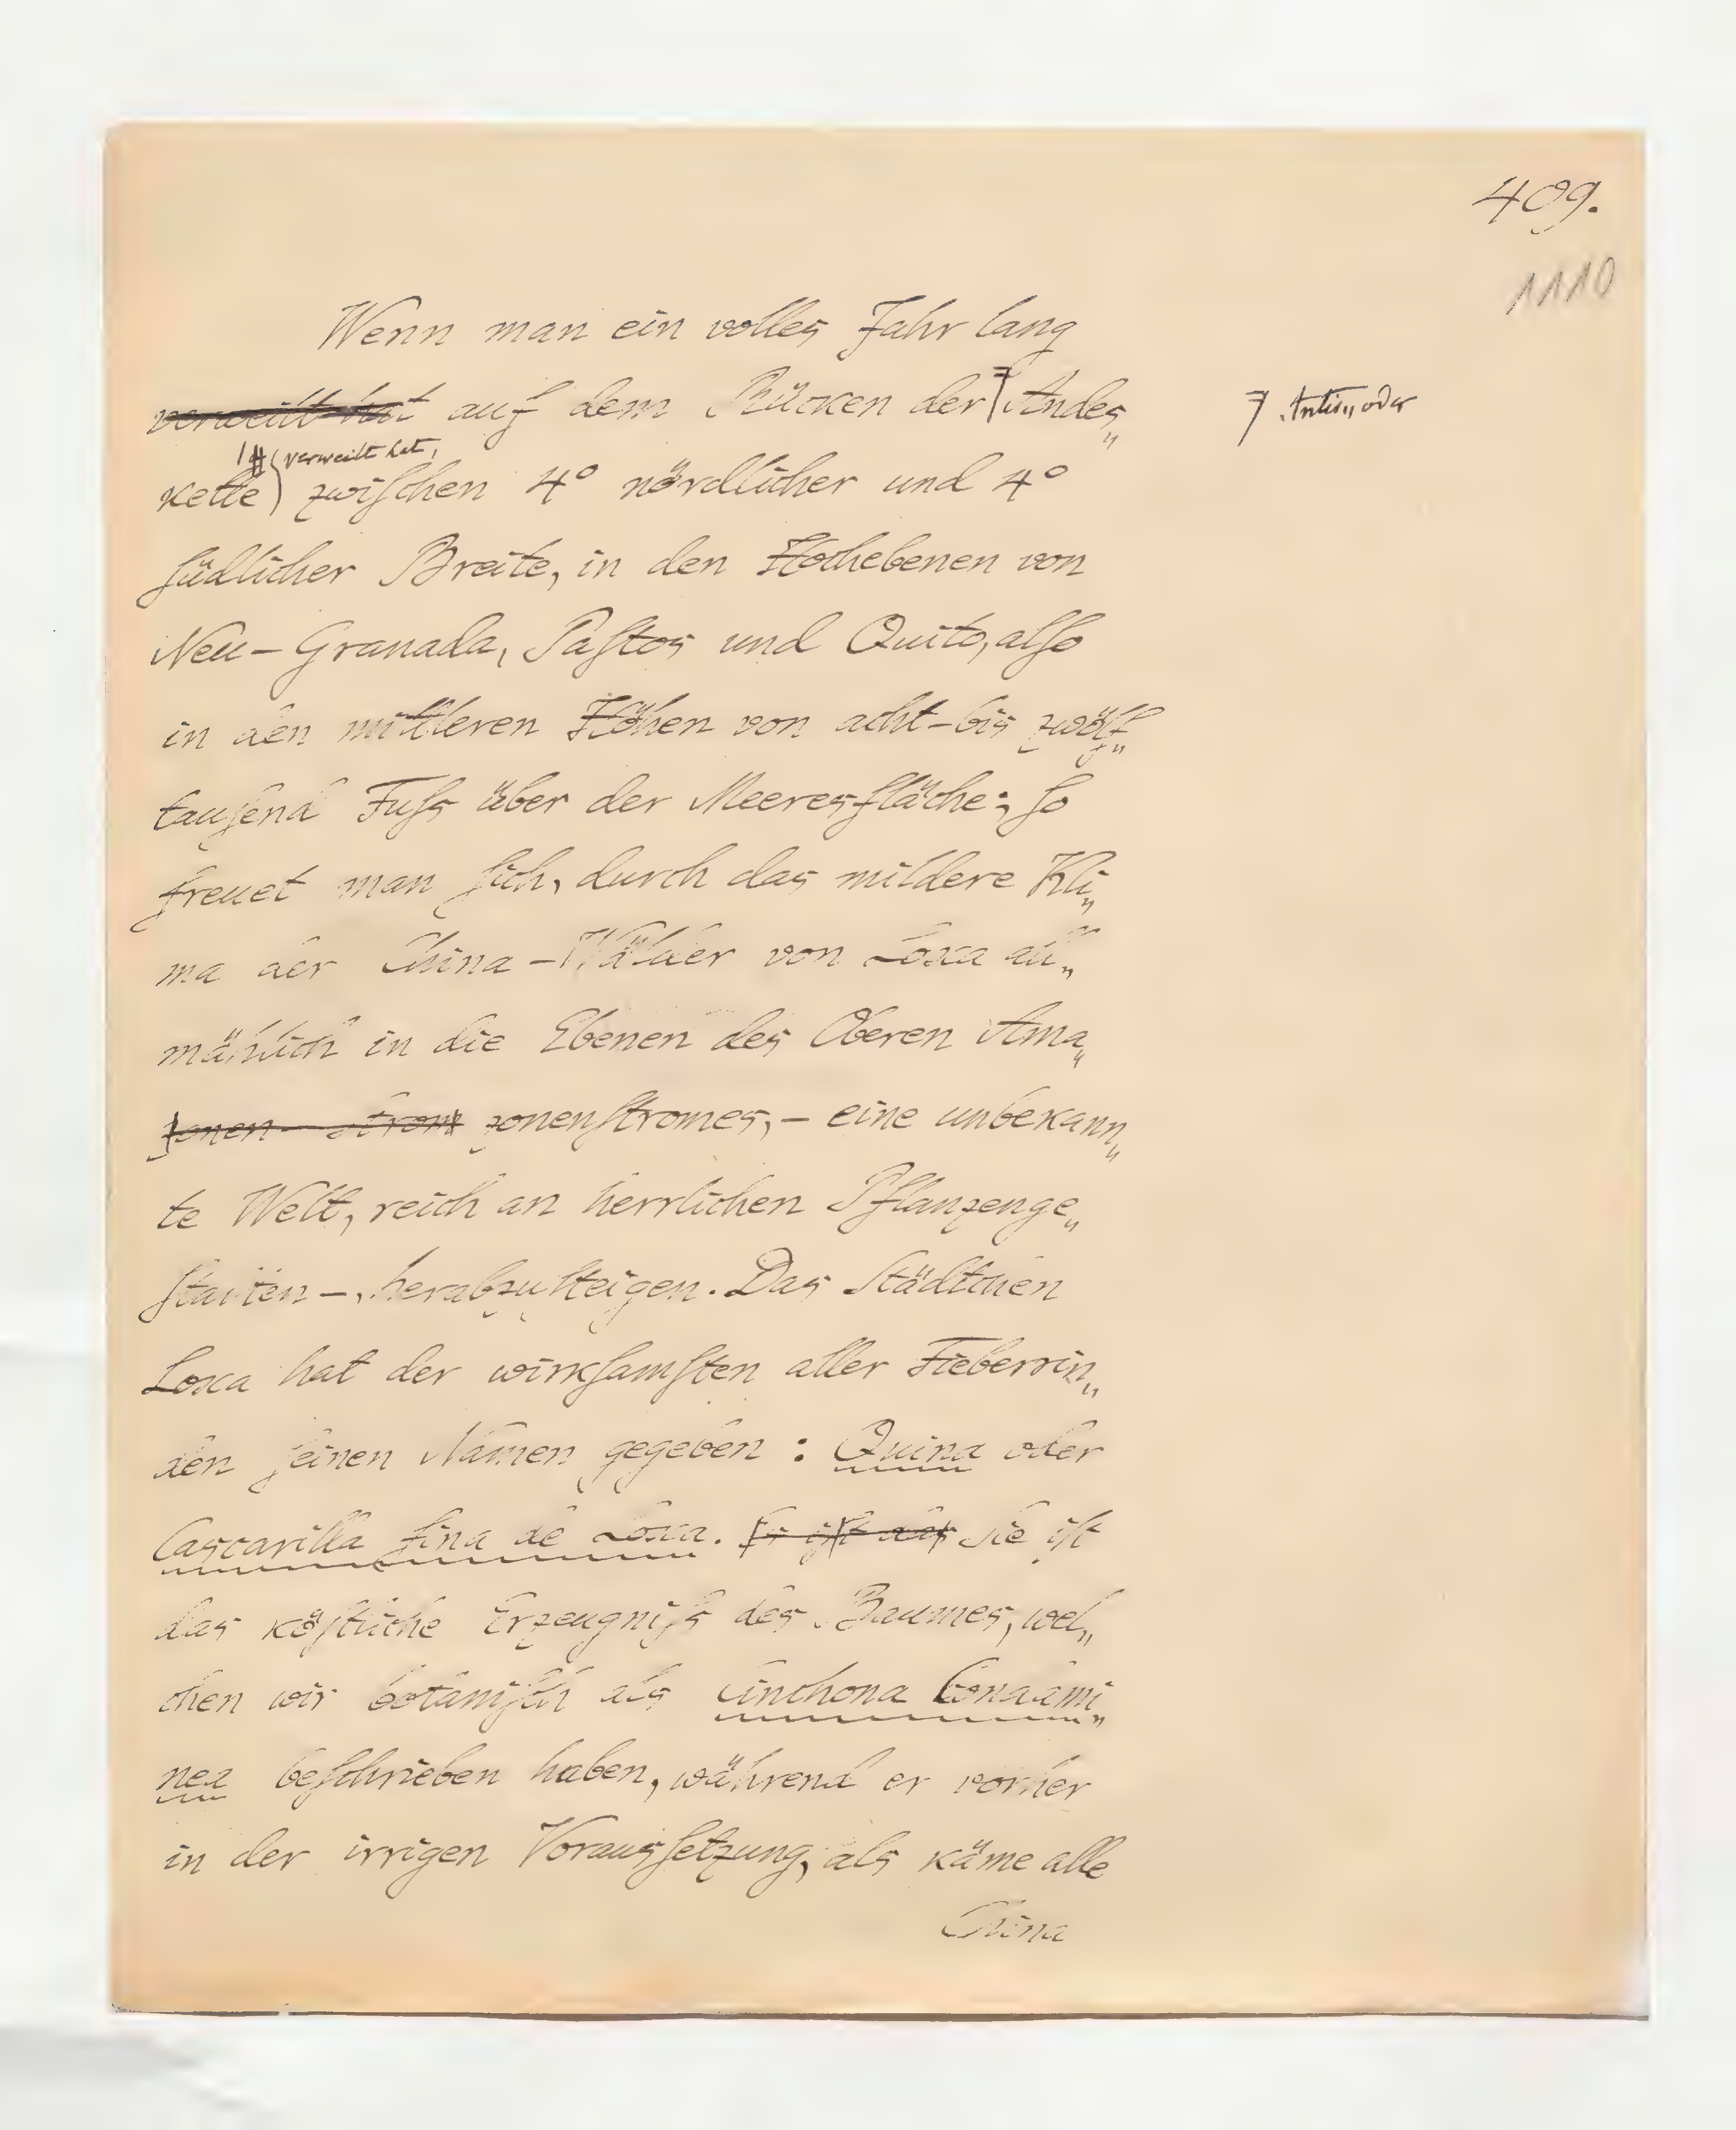 409.
1110
Wenn man ein volles Jahr lang
verweilt hat auf dem Rücken der Andes„
⁊ Antis„ oder
verweilt hat,
kette zwiſchen 4° nördlicher und 4°
ſüdlicher Breite, in den Hochebenen von
Neu-Granada, Paſtos und Quito, alſo
in den mittleren Höhen von acht- bis zwölf„
tauſend Fuſs über der Meeresfläche; ſo
freuet man ſich, durch das mildere Kli„
ma der China-Wälder von Loxa all„
mählich in die Ebenen des Oberen Ama„
zonenſtromes, – eine unbekann„
te Welt, reich an herrlichen Pflanzenge„
ſtalten –, herabzuſteigen. Das Städtchen
Loxa hat der wirkſamſten aller Fieberrin„
den ſeinen Namen gegeben: Quina oder
Cascarilla fina de Loxa. Er iſt das Sie iſt
das köſtliche Erzeugniſs des Baumes, wel„
chen wir botaniſch als Cinchona Condami„
nea beſchrieben haben, während er vorher
in der irrigen Vorausſetzung, als käme alle
China